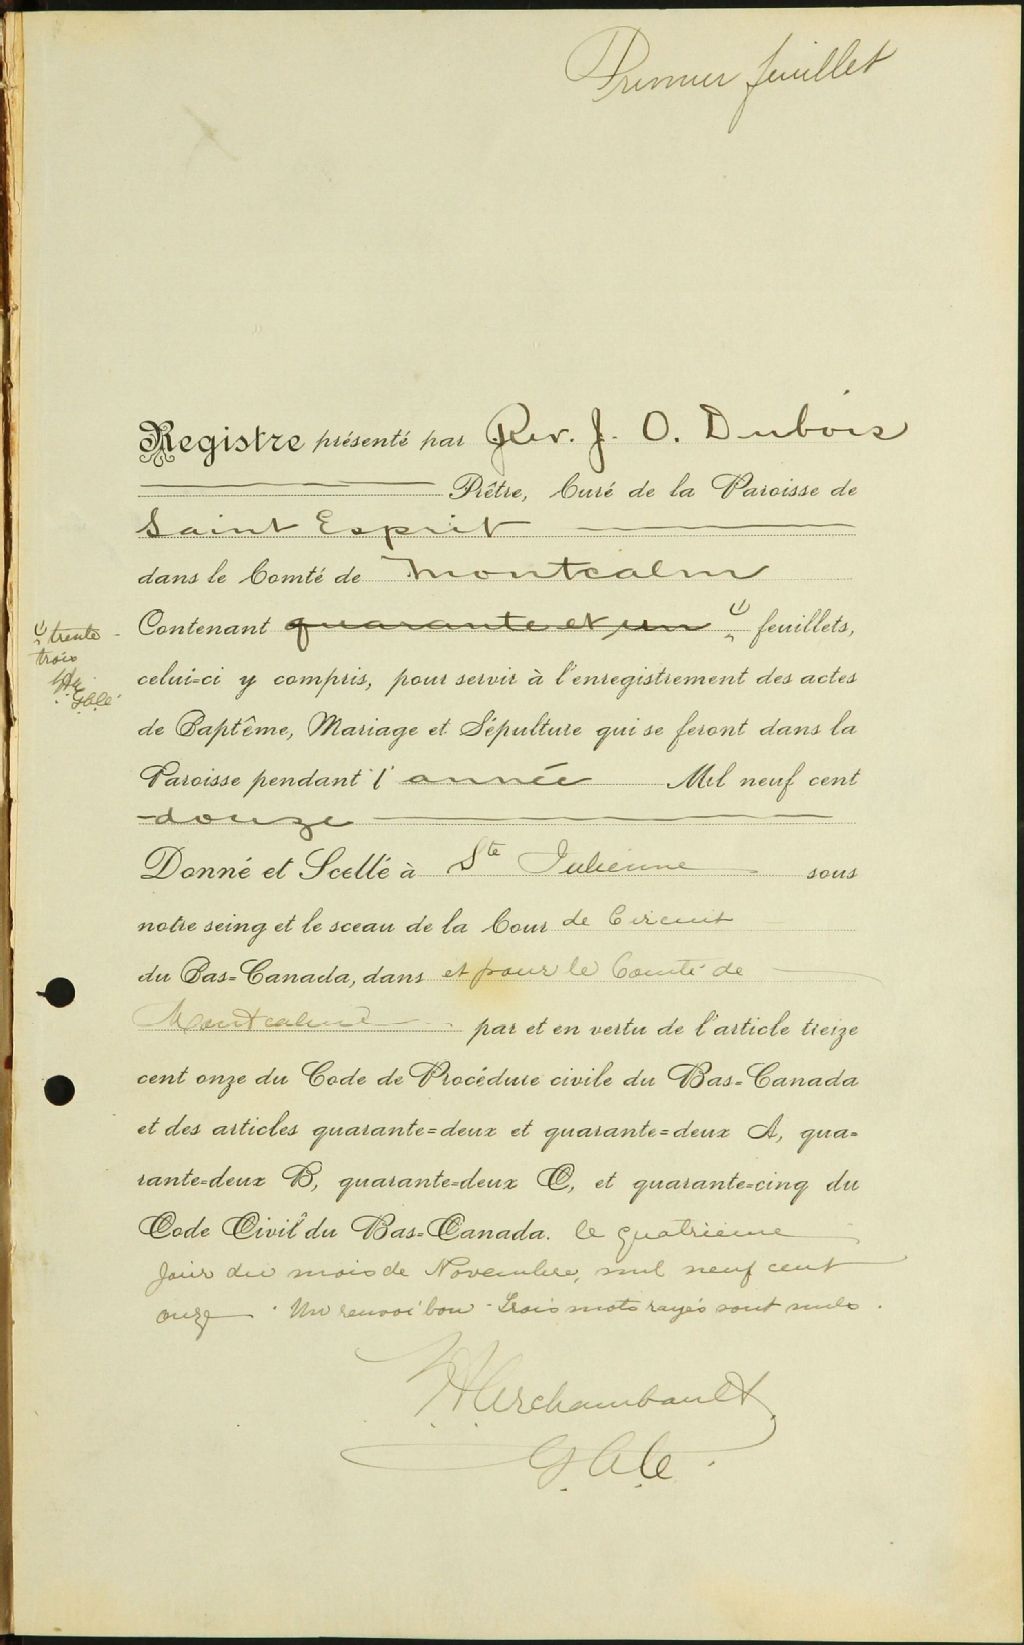 Premier feuillet
Registre présenté par Rev. J. O. Dubois
Prêtre, Curé de la Paroisse de
Saint Esprit
dans le Comté de Montcalm
Contenant quarante et un feuillets,
trente
trois
celui-ci y compris, pour servir à l'enregistrement des actes
de Baptême, Mariage et Sépulture qui se feront dans la
Paroisse pendant l'année Mil neuf cent
douze
Donné et Scellé à Ste Julienne sous
notre seing et le sceau de la Cour de Circuit
du Bas-Canada, dans et pour le Comté de
Montcalm par et en vertu de l'article treize
cent onze du Code de Procédure civile du Bas-Canada
et des articles quarante-deux et quarante-deux A, qua-
rante-deux B, quarante-deux C, et quarante-cinq du
Code Civil du Bas-Canada. le quatrieme
jour du mois de Novembre, mil neuf cent
onze. Un renvoi bon - Trois mots rayés sont nuls.
Archambault